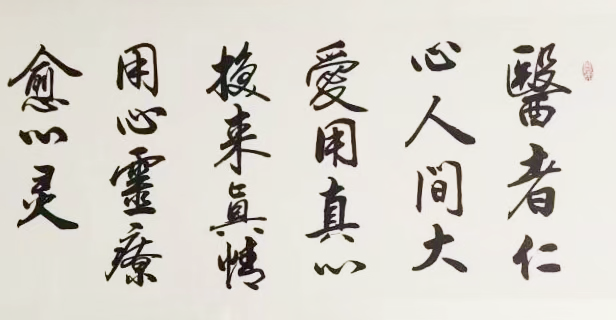 醫者仁
心人间大
愛用真心
换来真情
用心靈療
愈心灵